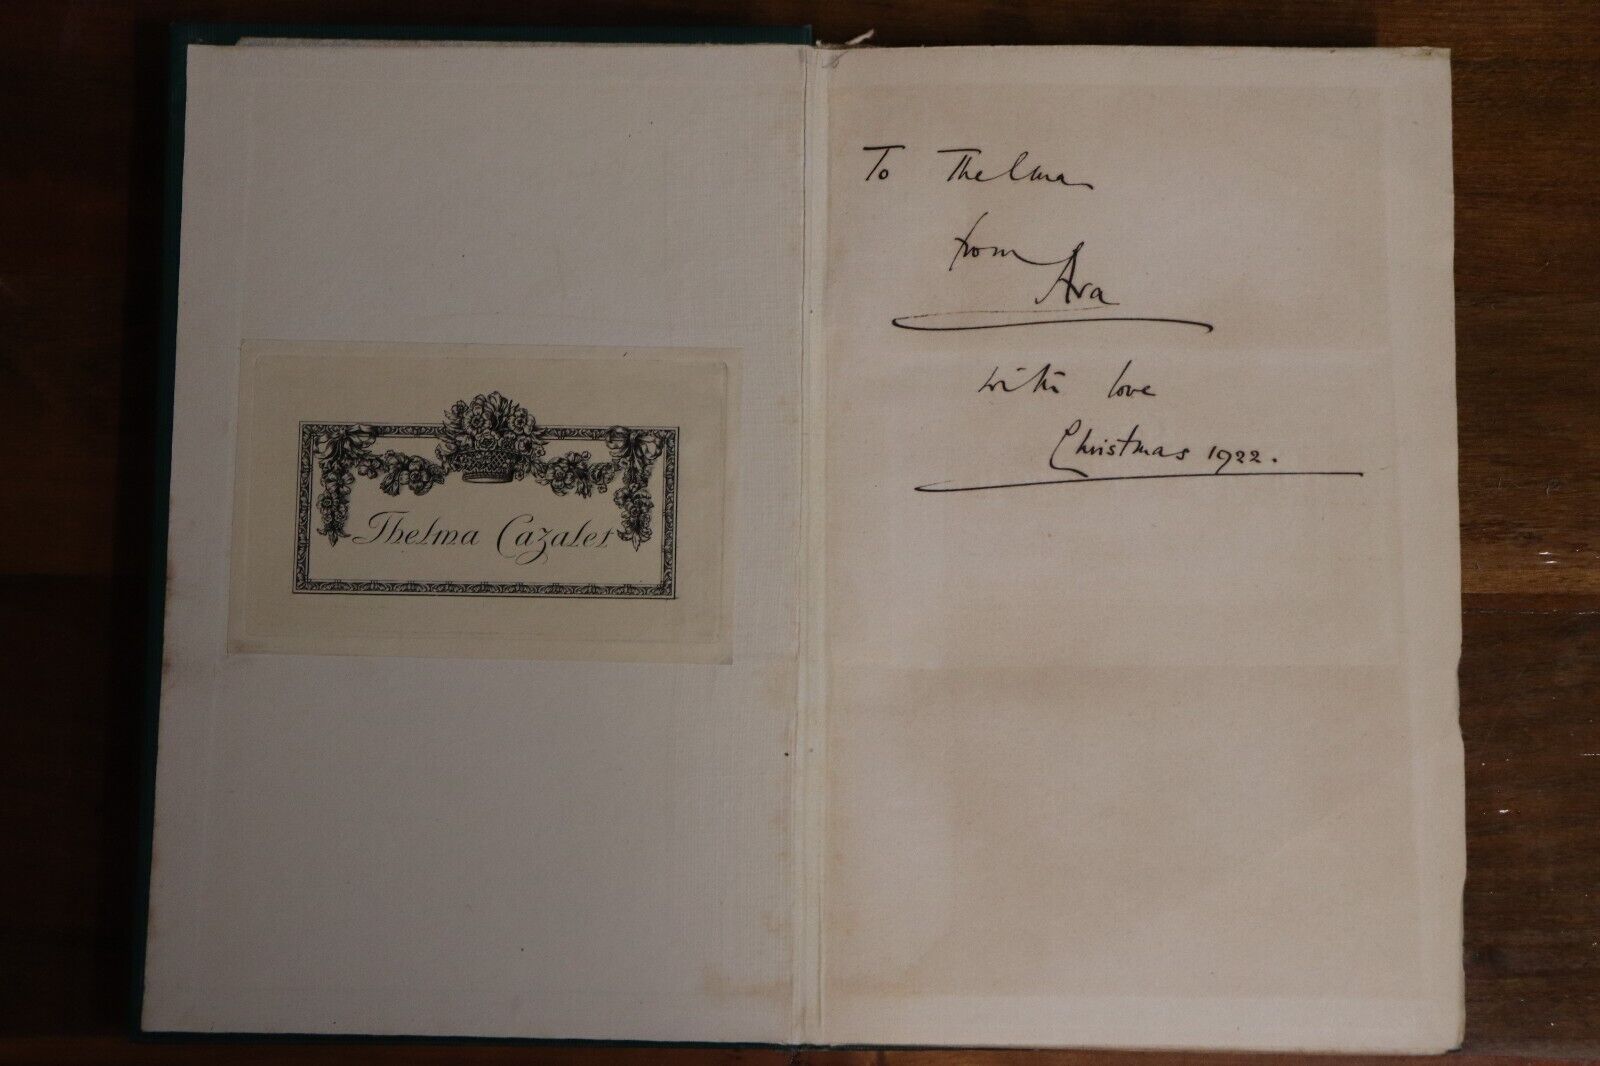 Thelma Cazalet
To Thelma
from
Ava
with love
Christmas 1922.